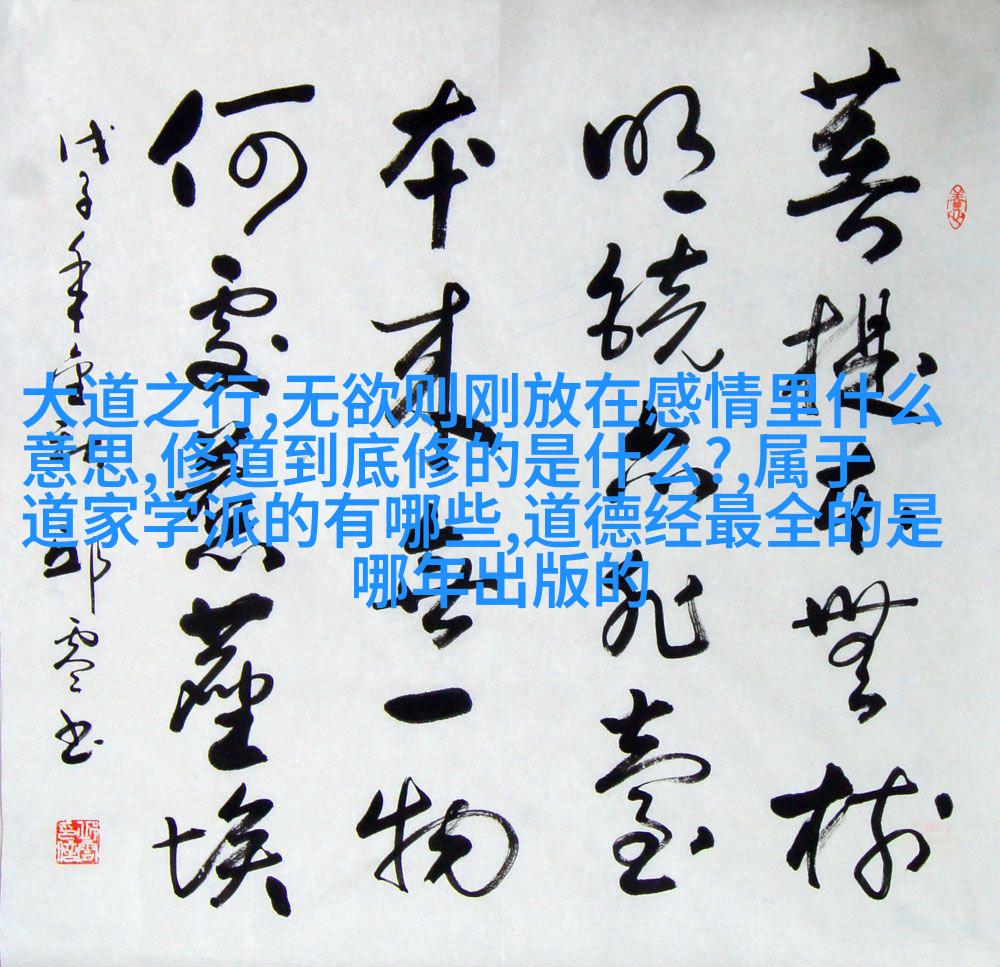 菩提本無樹
明鏡亦非臺
本来無一物
何處惹塵埃
戊子年
大道之行,无欲则刚放在感情里什么
意思,修道到底修的是什么?,属于
道家学派的有哪些,道德经最全的是
哪年出版的